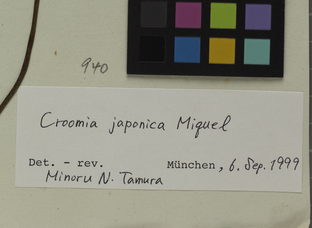 940
Croomia japonica Miquel
Det. - rev. München, 6. Sep. 1999
Minoru N. Tamura